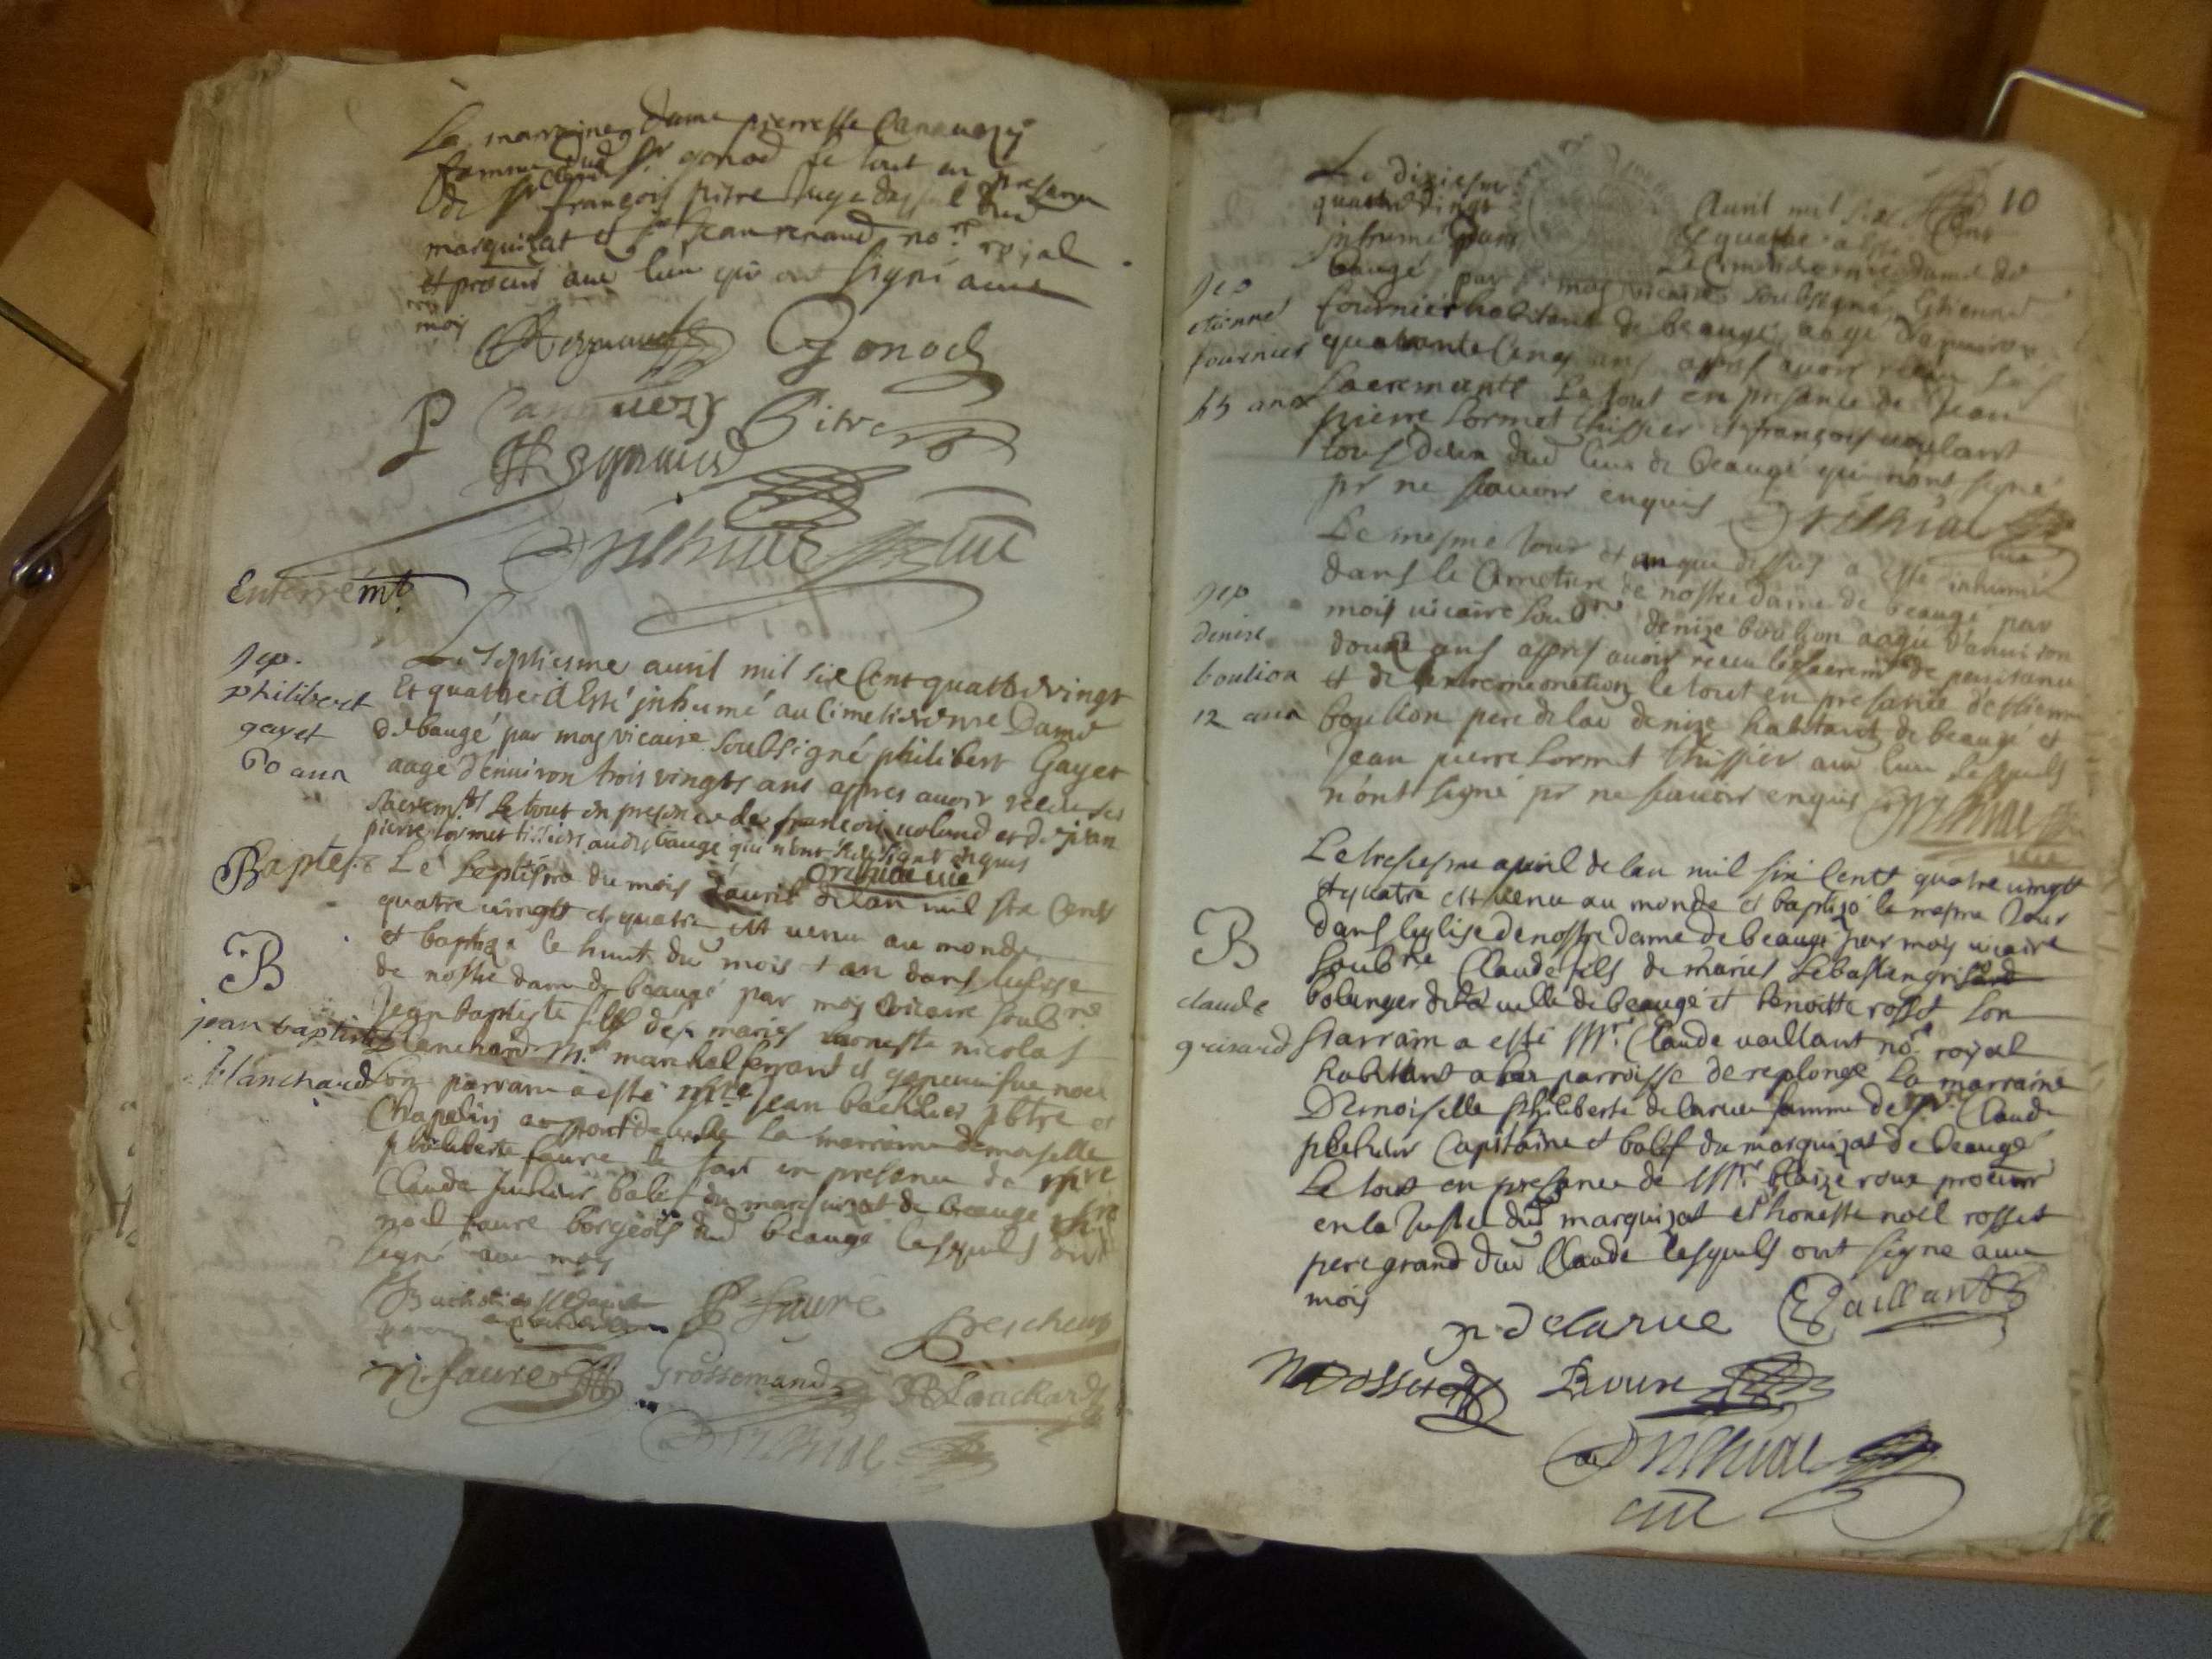 La marraine dame pierresse Canauozy
femme dud Sr gonod le tout en presance
de Sr françois pitre Juge dud
marquizat et Sr Jean renaud nore royal
et procur aud lieu qui ont signé auec
moy
Gonod
P Canauozy Pitre
Enterremt
Sep.
philibert
gayet
60 ans
Le Septiesme auril mil six Cent quattrevingt
Et quattre a Esté inhumé au Cimetiere Dame
de baugé par moy vicaire soubsigné philibert Gayet
aagé d'enuiron trois vingts ans appres auoir receu ses
sacremts Le tout en presence de francois uoland et de jean
pierre lormet tissiers audit baugé qui n'ont signé enquis
Baptes.
Le septiesme du mois d'auril de lan mil six Cents
quatre uingtz et quatre est uenu au monde
et baptizé le huit du mois et an dans leglise
de nostre dame de beaugé par moy vicaire soubne
B
jean baptiste
blanchard
Jean baptiste fils des mariés honneste nicolas
blanchard Mre marechal ferrant et geneuiefue noel
son parrain a esté Mre Jean bachelier pbtre et
Chapelin au pont de uelle La marraine demoiselle
philiberte faure le tout en presence de Mre
Claude balif du marquizat de beaugé
noel faure borgeois dud beaugé lesquels ont
signé auec moy
P faure
N. faure Grossemand Blanchard
10
Le diziesme auril mil six Cens
quattre vingt et quattre a esté
inhumé dans le Cimetiere dame de
baugé par moy vicaire soubsigné Ethienne
Sep
etienne
fournier
45 ans
fournier habitant de beaugé aagé d'enuiron
quarante Cinq ans apres auoir receu ses
Sacremants Le tout en presance de Jean
pierre Lormet thissier et françois uoulant
tous deux dud lieu de beaugé qui n'ont signé
pr ne scauoir enquis
Le mesme Jour et an que dessus a esté inhumé
dans le Cimetiere de nostre dame de beaugé par
Sep
denise
boulion
12 ans
mois uicaire soubne denize boulion aagée d'enuiron
douze ans appres auoir receu les sacremts de penitance
et de lextremeonction le tout en presance d'estienne
boulion pere de lad denize habitant de beaugé et
Jean pierre Lormet thissier aud lieu lesquels
n'ont signé pr ne scauoir enquis
Le tresiesme auril de lan mil six Cents quatre uingtz
et quatre est uenu au monde et baptizé le mesme Jour
dans leglise de nostre dame de beaugé par moy uicaire
B
claude
grisard
soubne Claude fils de mariés Sebastien grisard
bolanger de la uille de beaugé et benoitte rosset son
parrain a esté Mre Claude vaillant nore royal
habitant a la parroisse de replonge La marraine
Demoiselle philiberte delarue famme de Mre Claude
Capitaine et balif du marquizat de beaugé
Le tout en presance de Mre blaize roux procur
en la Justice dud marquizat et honeste noel rosset
pere grand dud Claude lesquels ont signé auec
mois
p. delarue Vaillant
N Rosset B roux